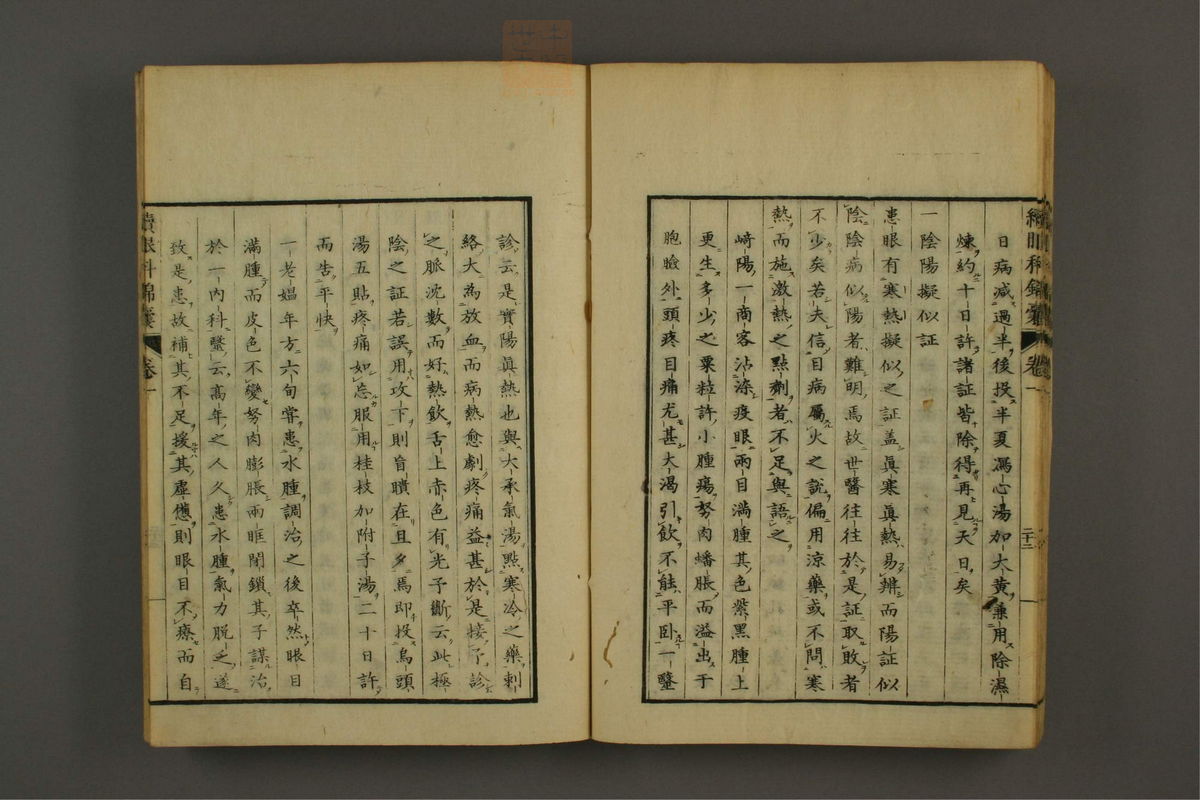 日病減過半後投半夏瀉心湯加大黃兼用除濕
煉約十日許諸証皆除得再見天日矣
一陰陽擬似証
患眼有寒熱擬似之証蓋眞寒眞熱易辨而陽証似
陰陰病似陽者難明焉故世醫往往於是証取敗者
不少矣若夫信目病屬火之說偏用涼藥或不問寒
熱而施激熱之點劑者不足與語之
崎陽一商客沾染疫眼兩目滿腫其色紫黑腫上
更生多少之粟粒許小腫瘍努肉蟠脹而溢出于
胞瞼外頭疼目痛尤甚大渴引飲不能平卧一毉
診云是實陽眞熱也與大承氣湯點寒冷之藥刺
絡大為放血而病熱愈劇疼痛益甚於是接予診
之脈沈數而好熱飲舌上赤色有光予斷云此極
陰之証若誤用攻下則盲瞶在旦夕焉即投烏頭
湯五貼疼痛如忘服用桂枝加附子湯二十日許
而告平快
一老媼年方六旬嘗患水腫調治之後卒然眼目
滿腫而皮色不變努肉膨脹兩眶閉鎖其子謀治
於一內科毉云高年之人久患水腫氣力脫乏遂
致是患故補其不足援其虛憊則眼目不療而自
續眼科錦囊
卷一
二十二